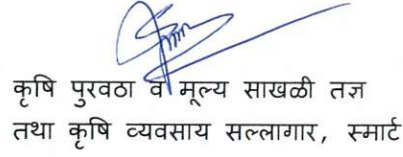 कृषि पुरवठा व मूल्य साखळी तज्ञ
तथा कृषि व्यवसाय सल्लागार, स्मार्ट